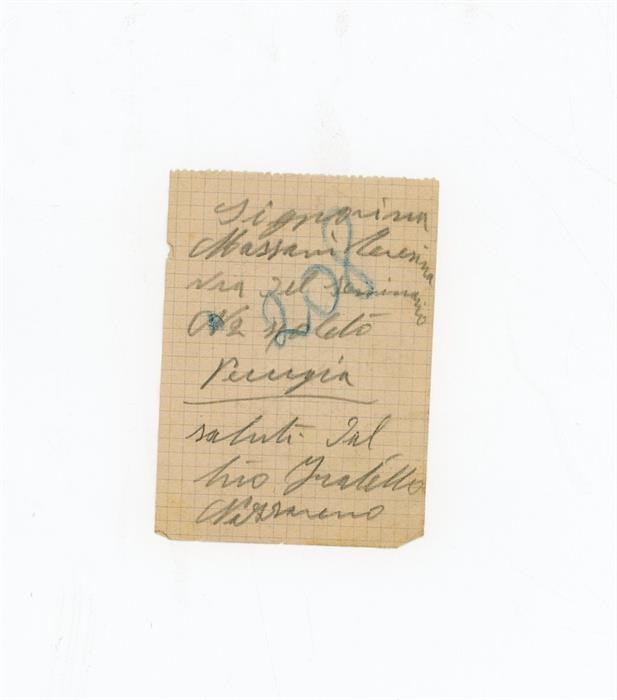 Signorina
Massani Teresina
via del seminario
N2 spoleto
Perugia
saluti dal
tuo fratello
Nazzareno
208